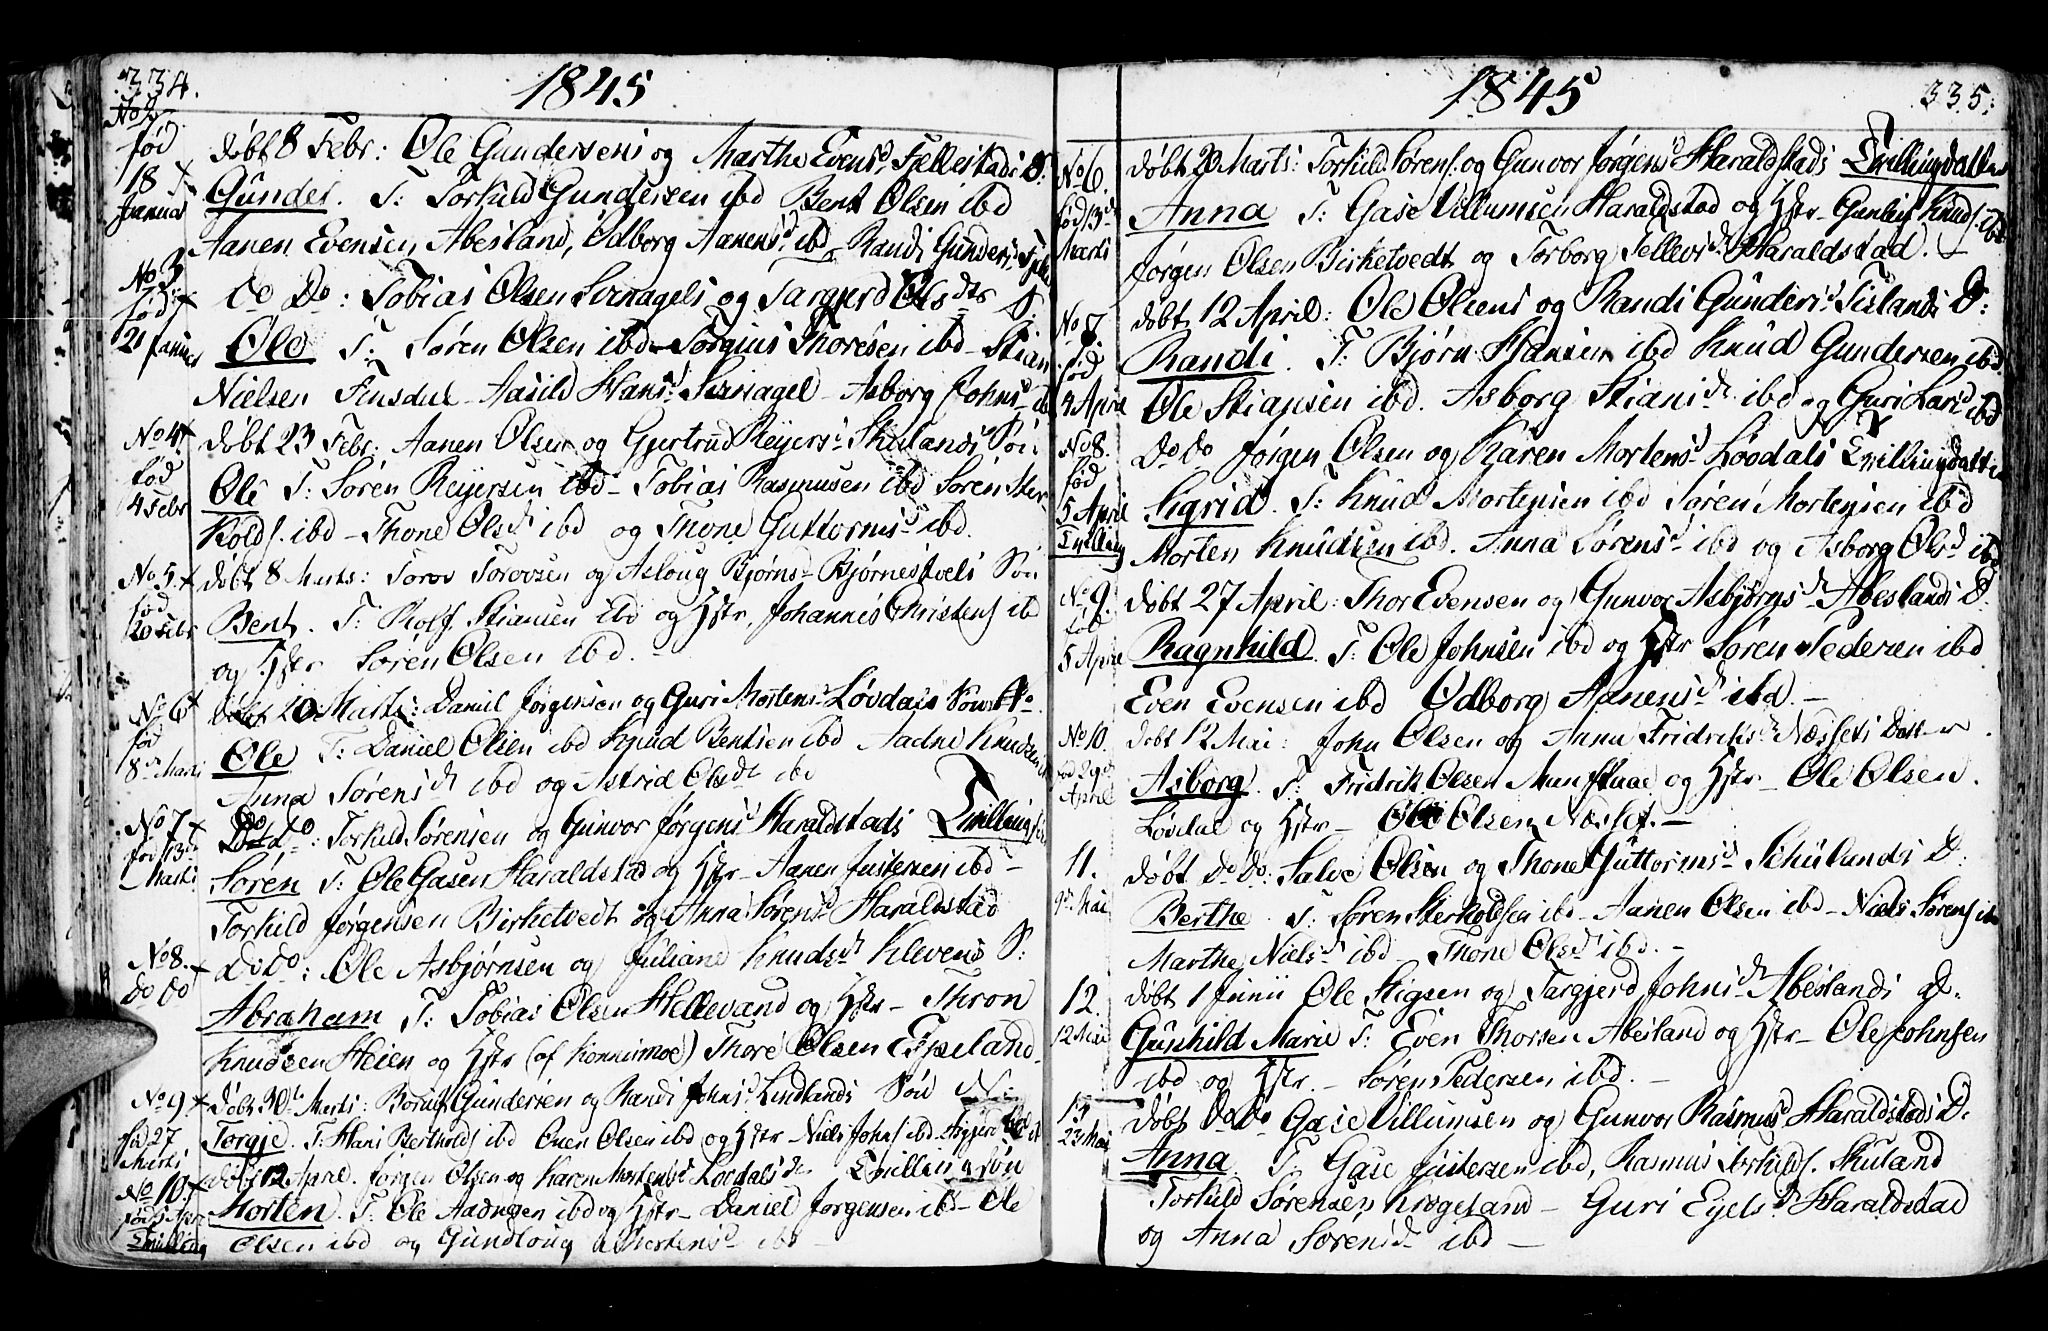 334.
1845
No 2
fød
18
Januar
døbt 8 Febr: Ole Gundersens og Marthe Evensd. Fjellestads S.
Gunder. T: Torkild Gundersen ibd Bent Olsen ibd
Aanen Evensen Abesland, Odborg Aanensd. ibd Randi Gundersd.
No 3
fød
21 Januar
Do Do: Tobias Olsen Svenagels og Targjerd Olsdtr S.
Ole T: Søren Olsen ibd Torgius Thoresen ibd - Stian
Nielsen Finsdal - Aasild Hansd. Svenagel - Asborg Johnsd ibd
No 4
fød
4 Febr
døbt 23 Febr: Aanen Olsen og Gjertrud Reyersd. Skulands Søn
Ole T: Søren Reyersen ibd - Tobias Rasmusen ibd Søren Ster-
kolds. ibd - Thone Olsdt ibd og Thone Guttormsd ibd.
No 5
fød
20 Febr
døbt 8 Marts: Torov Torovsen og Asloug Bjørnsd. Bjørnestvels Søn
Bent. T: Rolf Stiansen ibd og Hstr, Johannes Christens ibd
og Hstr Søren Olsen ibd.
No 6
fød
8de Marti
døbt 20 Marts: Daniel Jørgensen og Guri Mortensd. Løvdals Søn
Ole T: Daniel Olsen ibd Knud Bentsen ibd Aadne Knudsen
Anna Sørensdt ibd og Astrid Olsdt ibd
No 7
fød 13de
Marti
Do Do: Torkild Sørensen og Gunvor Jørgensd Haraldstads Tvilling
Søren T: Ole Gasen Haraldstad og Hstr - Aanen Justersen ibd -
Torkild Jørgensen Birketvedt og Anna Sørensd. Haraldstad
No 8.
Do Do
Do Do: Ole Asbjørnsen og Juliane Knudsdt Klevens S:
Abraham T: Tobias Olsen Hellevand og Hstr - Thron
Knudsen Heien og Hstr (af Konnismoe) Thore Olsen Espeland
No 9
fød 27
Marti
døbt 30te Marts: Børuf Gundersen og Randi Johnsd. Lindlands Søn
Torgje. T: Hans Bertholds ibd Even Olsen ibd og Hstr - Niels Johns ibd
No 10
fød 5 Apr
Tvilling
døbt 12 April. Jørgen Olsen og Karen Mortensd Løvdals Tvilling søn
Morten. T: Ole Aadnesen ibd og Hstr - Daniel Jørgensen ibd - Ole
Olsen ibd og Gundloug Mortensd ibd -
1845
335.
No 6.
fød 13de
Marti
døbt 20 Marts: Torkild Sørens. og Gunvor Jørgensd Haraldstads Tvillingdatter
Anna T: Gase Villumsen Haraldstad og Hstr - Gunleif Knuds. ibd
Jørgen Olsen Birketvedt og Torborg Tellevsdt Haraldstad. -
No 7
fød
4 April
døbt 12 April: Ole Olsens og Randi Gundersd Tislands D:
Randi. T: Bjørn Hansen ibd Knud Gundersen ibd
Ole Stiansen ibd. Asborg Stiansdt ibd og Guri Larsd ibd
No 8.
fød
5 April
Tvilling
Do Do Jørgen Olsen og Karen Mortensd Løvdals Tvillingdatter
Sigrid. T: Knud Mortensen ibd Søren Mortensen ibd
Morten Knudsen ibd. Anna Sørensd ibd og Asborg Olsd ibd
No 9.
fød
5 April
døbt 27 April: Thor Evensen og Gunvor Asbjørnsdt Abeslands D.
Ragnhild. T: Ole Johnsen ibd og Hstr Søren Pedersen ibd
Even Evensen ibd Odborg Aanensdt ibd. -
No 10.
April
døbt 12 Mai: John Olsen og Anna Fridriksdt Næssets Datter
Asborg. T: Fridrik Olsen Manflaae og Hstr - Ole Olsen.
Løvdal og Hstr - Ole Olsen Næsset. -
11.
9de Mai
døbt Do Do: Salve Olsen og Thone Guttormsd Skulands D:
Berthe. T: Søren Sterkoldsen ibd - Aanen Olsen ibd - Niels Sørens ibd
Marthe Nielsdt ibd - Thone Olsdt ibd. -
12.
12 Mai
døbt 1 Junii Ole Stigsen og Targjerd Johnsdt Abeslands D.
Gunhild Marie T: Even Thorsen Abesland og Hstr - Ole Johnsen
ibd og Hstr. - Søren Pedersen ibd. -
13
23 Mai
døbt Do Do Gase Villumsen og Gunvor Rasmusd Haraldstads D.
Anna. T. Gase Justersen ibd, Rasmus Torkilds. Skuland
Torkild Sørensen Krogeland - Guri Ejelsdt Haraldstad
og Anna Sørensdt ibd -